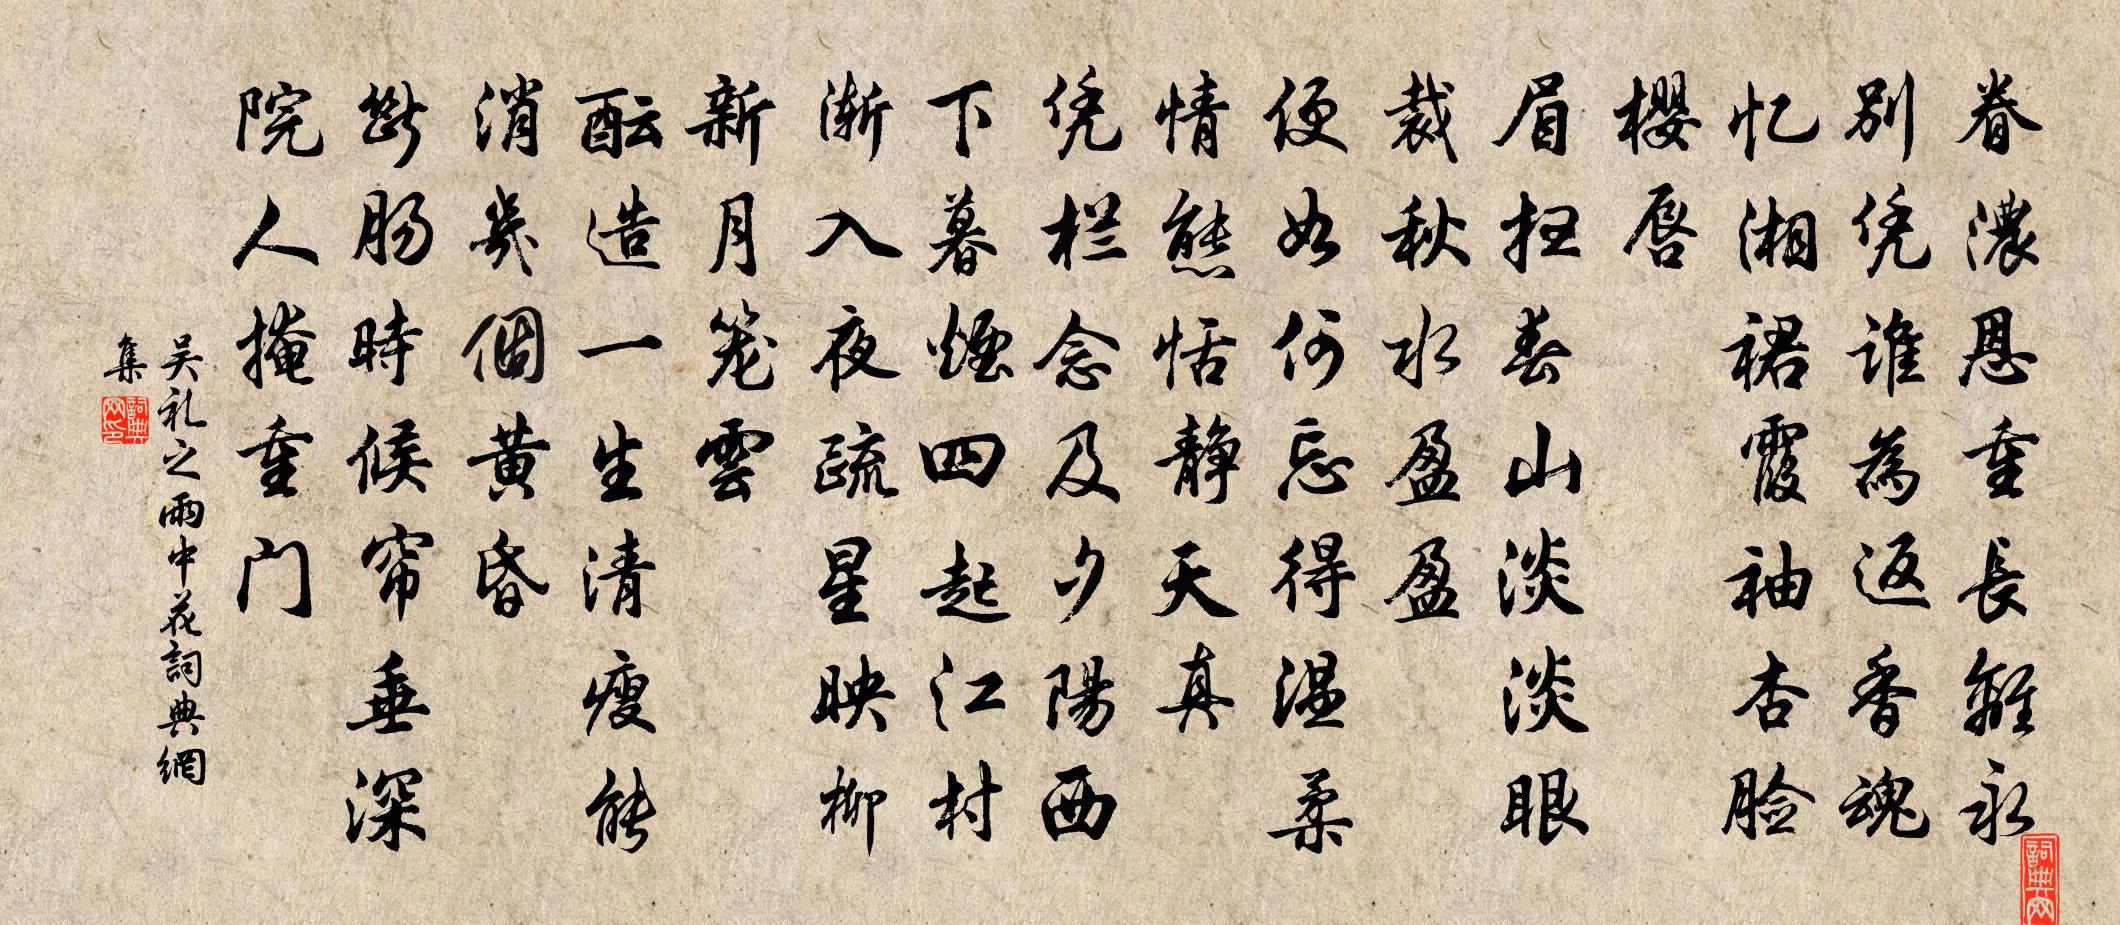 眷濃恩重長離永
別凭誰為返香魂
忆湘裙霞袖杏脸
櫻唇
眉扫春山淡淡眼
裁秋水盈盈
便如何忘得温柔
情態恬静天真
凭栏念及夕陽西
下暮煙四起江村
渐入夜疏星映柳
新月笼雲
酝造一生清瘦能
消幾個黄昏
断肠時候帘垂深
院人掩重门
吴礼之雨中花詞典網
集
詞典网印
詞典网